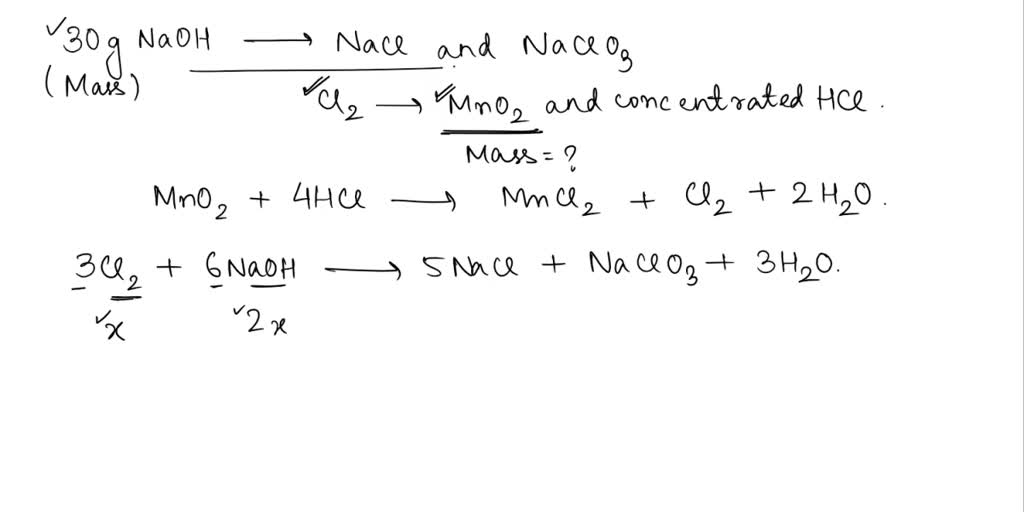 ✓30g NaOH ⟶ NaCl and NaClO₃
(Mass) ✓Cl₂ ⟶ ✓MnO₂ and concentrated HCl.
Mass = ?
MnO₂ + 4HCl ⟶ MnCl₂ + Cl₂ + 2H₂O.
3Cl₂ + 6NaOH ⟶ 5NaCl + NaClO₃ + 3H₂O.
✓x ✓2x